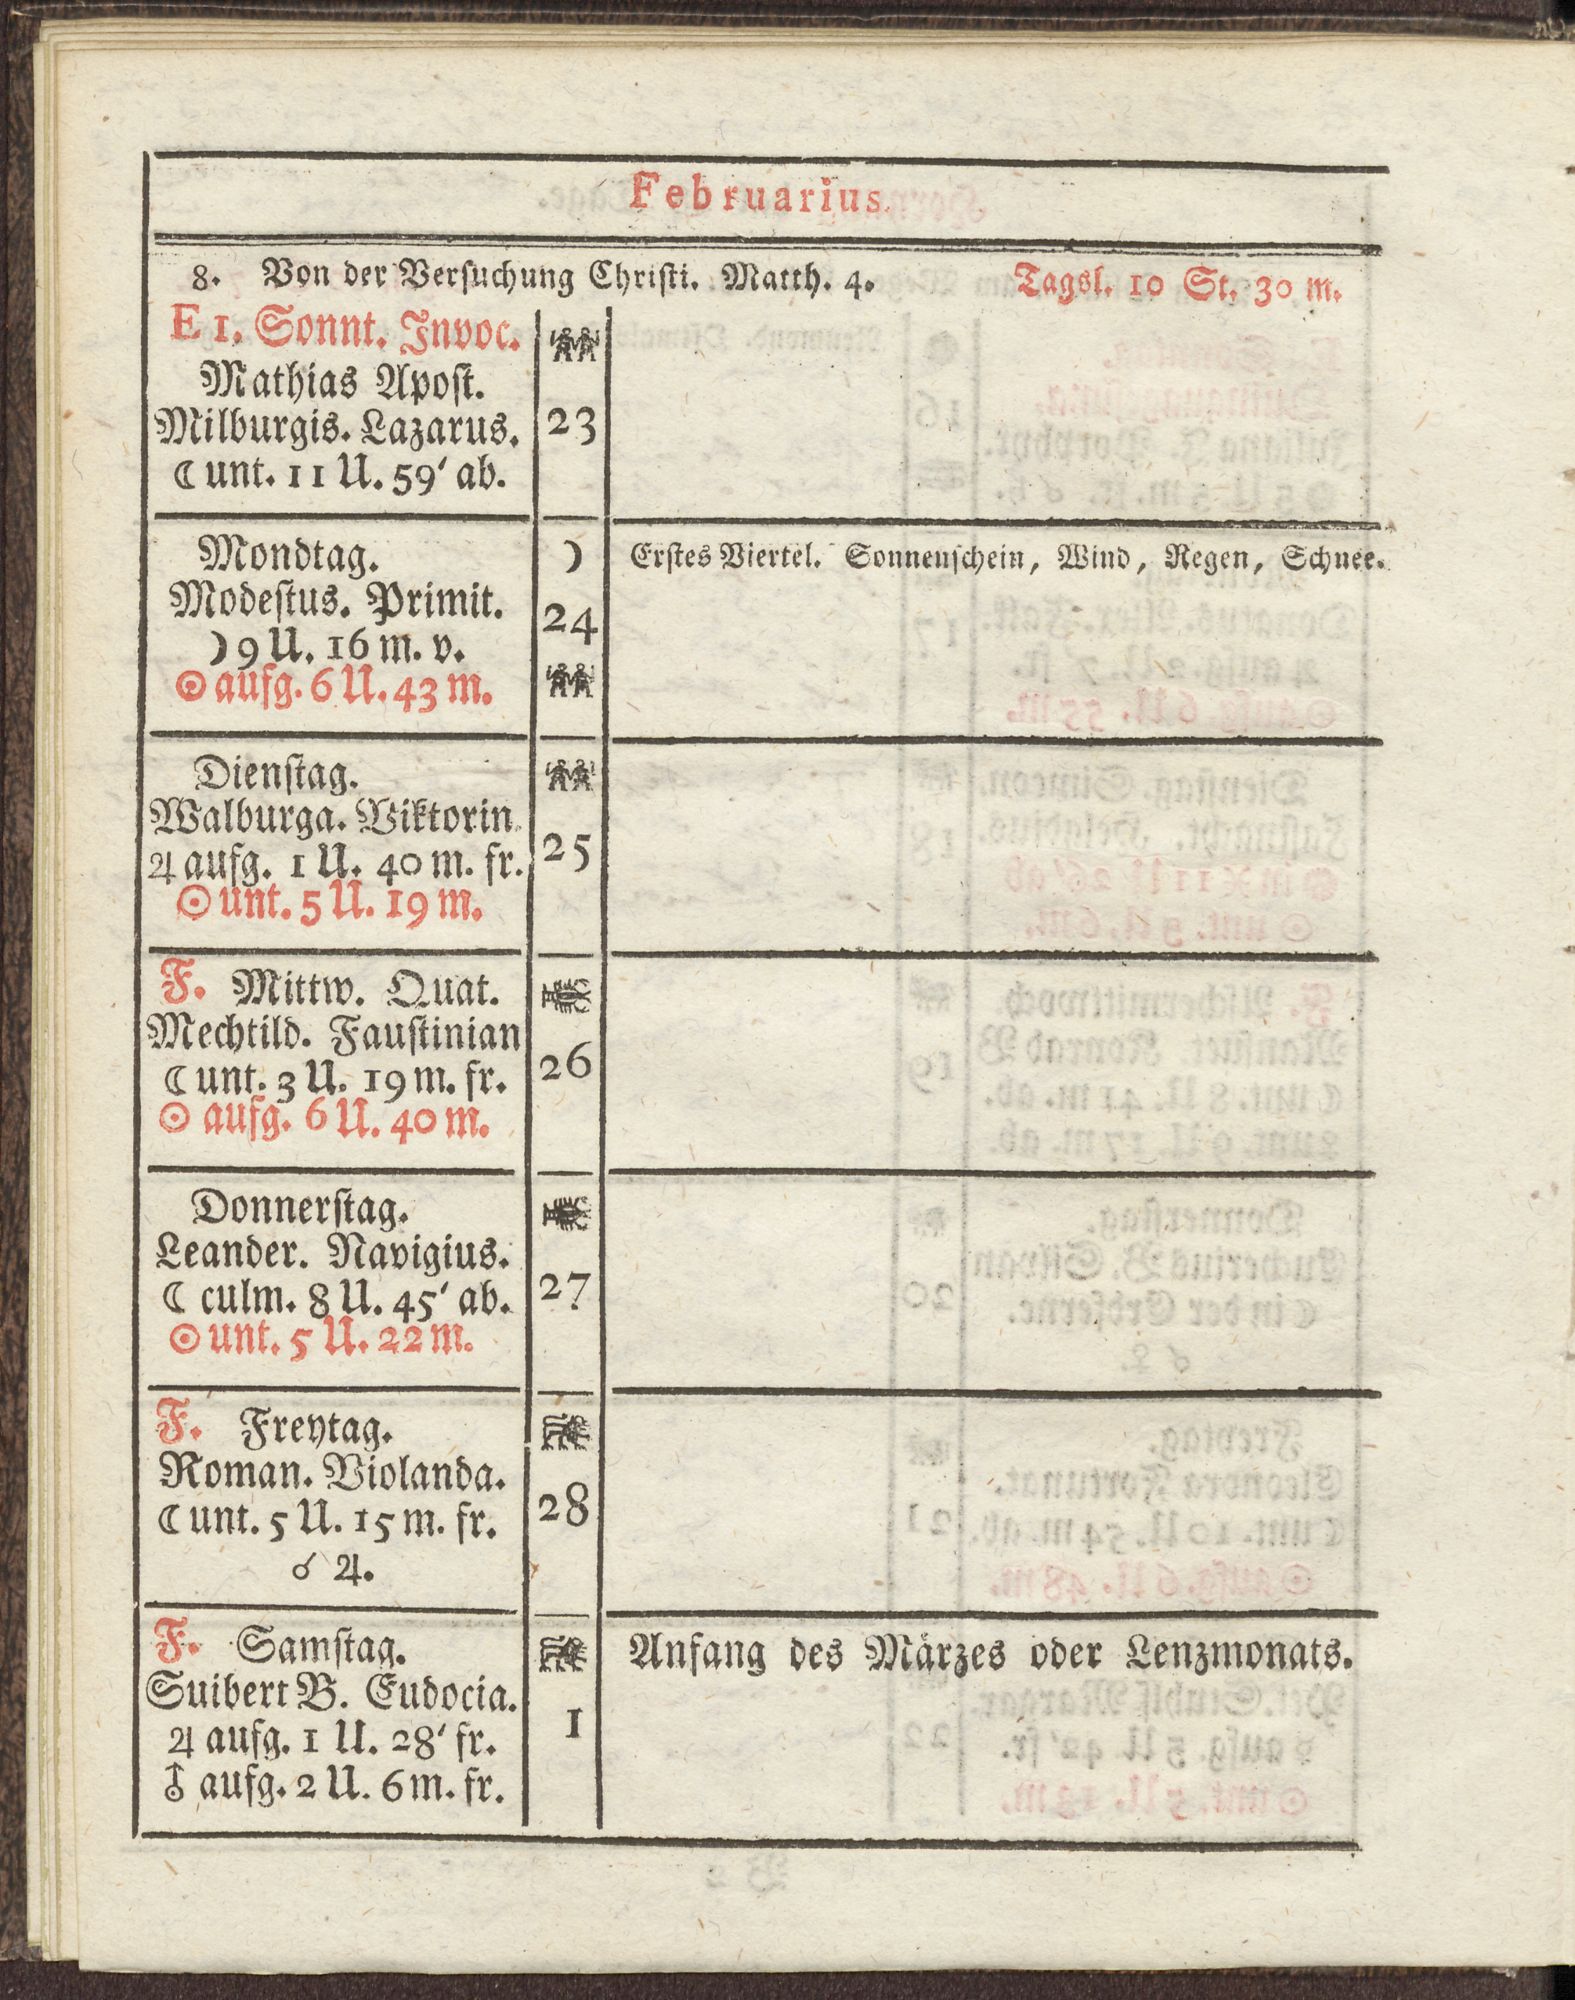 Februarius.
8. Von der Versuchung Christi. Matth. 4. Tagsl. 10 St. 30 m.
E 1. Sonnt. Invoc.
Mathias Apost.
Milburgis. Lazarus. 23
☾ unt. 11 U. 59′ ab.
Mondtag. ☽ Erstes Viertel. Sonnenschein, Wind, Regen, Schnee.
Modestus. Primit. 24
☽ 9 U. 16 m. v.
☉ aufg. 6 U. 43 m.
Dienstag.
Walburga. Viktorin
♃ aufg. 1 U. 40 m. fr. 25
☉ unt. 5 U. 19 m.
F. Mittw. Quat.
Mechtild. Faustinian
☾ unt. 3 U. 19 m. fr. 26
☉ aufg. 6 U. 40 m.
Donnerstag.
Leander. Navigius.
☾ culm. 8 U. 45′ ab. 27
☉ unt. 5 U. 22 m.
F. Freytag.
Roman. Violanda.
☾ unt. 5 U. 15 m. fr. 28
☌ ♃.
F. Samstag. Anfang des Märzes oder Lenzmonats.
Suibert B. Eudocia.
♃ aufg. 1 U. 28′ fr. 1
♁ aufg. 2 U. 6 m. fr.